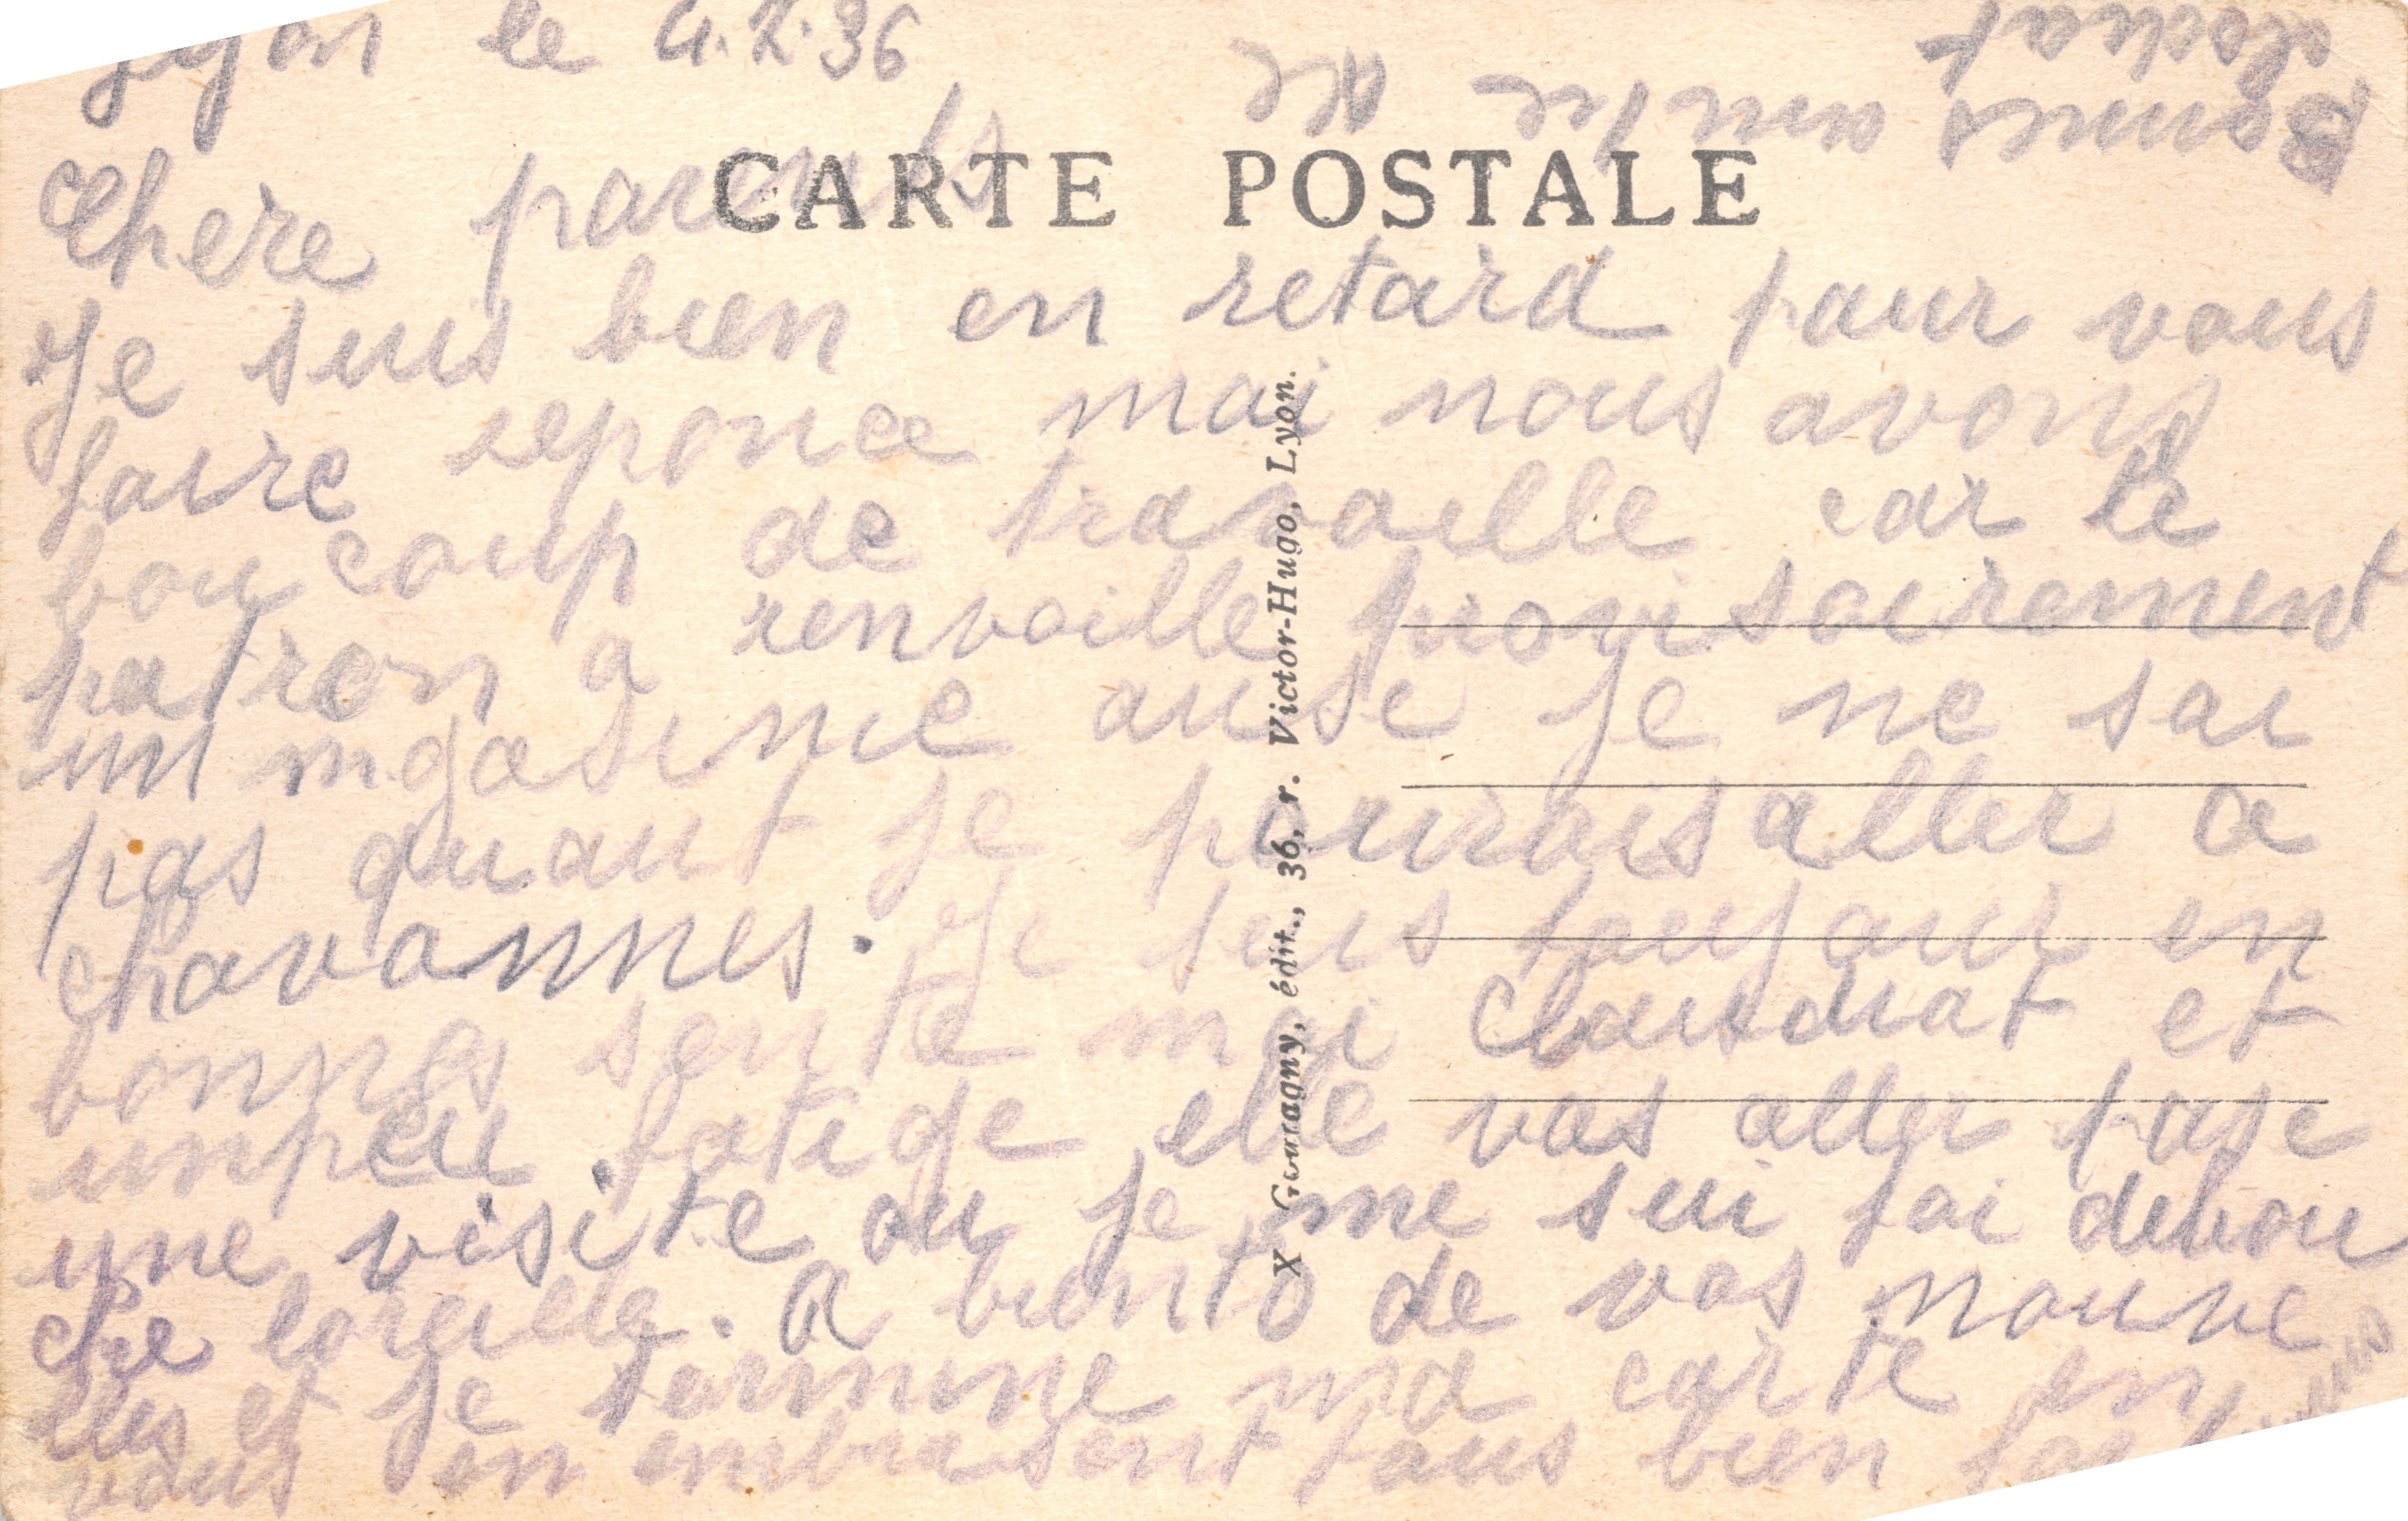 Lyon le 4.2.36
CARTE POSTALE
Chere parents
Je suis bien en retard pour vous
faire reponce mai nous avons
boucoup de travaille car le
patron a renvoille provisoirement
un mgasinie ause je ne sai
pas quant je pourais aller a
chavannes. Je suis toujour en
bonnes sente moi Claudiat et
unpeu fatige elle vas aller pase
une visite ou je me sui fai debou
che loreille. A biento de vos nouve
elles et je termine ma carte en
vous en embrasent tous bien
Bonnes année
Claudiat
X Gouttagny, édit., 36, r. Victor-Hugo, Lyon.